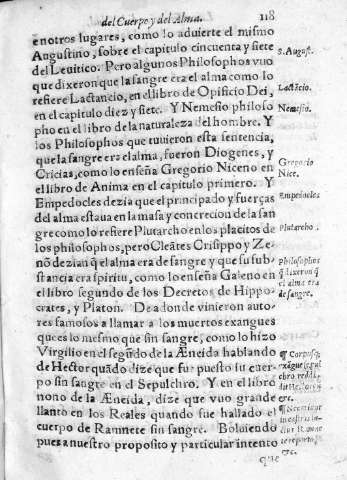 del Cuerpo y del Alma. 118
en otros lugares, como lo aduierte el mismo
Augustino, sobre el capitulo cincuenta y siete
del Leuitico. Pero algunos Philosophos vuo
que dixeron que la sangre era el alma como lo
refiere Lactancio, en el libro de Opificio Dei,
en el capitulo diez y siete. Y Nemesio philoso
pho en el libro de la naturaleza del hombre. Y
los Philosophos que tuuieron esta sentencia,
que la sangre era el alma, fueron Diogenes, y
Cricias, como lo enseña Gregorio Niceno en
el libro de Anima en el capitulo primero. Y
Empedocles dezia que el principado y fuerças
del alma estaua en la masa y concrecion de la san
gre como lo refiere Plutarcho en los placitos de
los philosophos, pero Cleãtes Crisippo y Ze-
nõ dezian q̃ el alma era de sangre y que su sub-
stancia era spiritu, como lo enseña Galeno en
el libro segundo de los Decretos de Hippo-
crates, y Platon. De a donde vinieron auto-
res famosos a llamar a los muertos exangues
que es lo mesmo que sin sangre, como lo hizo
Virgilio en el segũdo de la Æneida hablando
de Hector quãdo dize que fue puesto su cuer-
po sin sangre en el Sepulchro. Y en el libro
nono de la Æneida, dize que vuo grande
llanto en los Reales quando fue hallado el
cuerpo de Ramnete sin sangre. Boluiendo
pues a nuestro proposito y particular intento
que
S. August.
Lactãcio.
Nemesio.
Gregorio
Nice.
Empedocles
Plutarcho.
Philosophos
q̃ dixeron q̃
el alma era
de sangre.
¶ Corpusq;
exangue sepul
chro